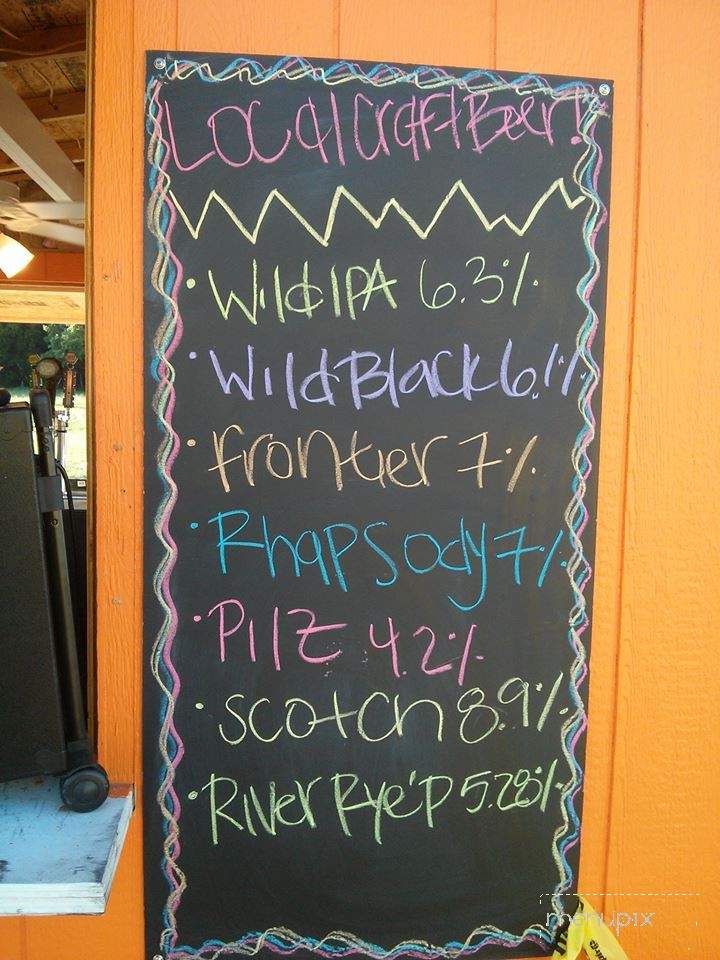 Local Craft Beer!
• Wild IPA 6.3%
• Wild Black 6.1%
• Frontier 7%
• Rhapsody 7%
• Pilz 4.2%
• Scotch 8.9%
• River Rye'P 5.28%
menupix